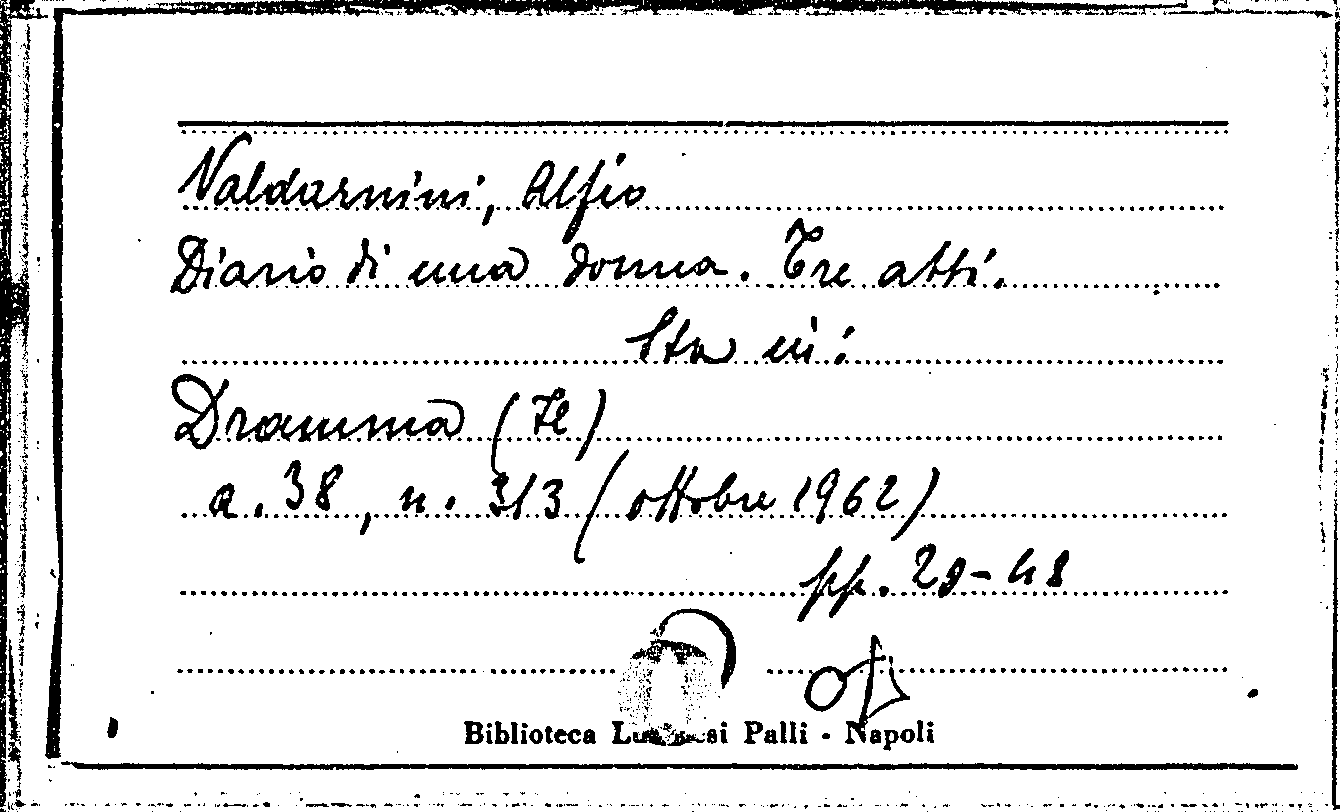 Valdarnini, Alfio
Diario di una donna. Tre atti.
Sta in:
Dramma (Il)
a. 38, n. 313 (ottobre 1962)
pp. 29-48
Biblioteca Palli - Napoli